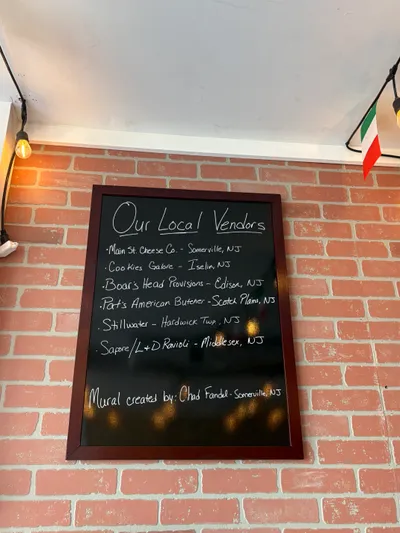 Our Local Vendors
• Main St. Cheese Co. - Somerville, NJ
• Cookies Galore - Iselin, NJ
• Boar's Head Provisions - Edison, NJ
• Pat's American Butcher - Scotch Plains, NJ
• Stillwater - Hardwick Twp, NJ
• Sapore/L & D Ravioli - Middlesex, NJ
Mural created by: Chad Fandel - Somerville, NJ